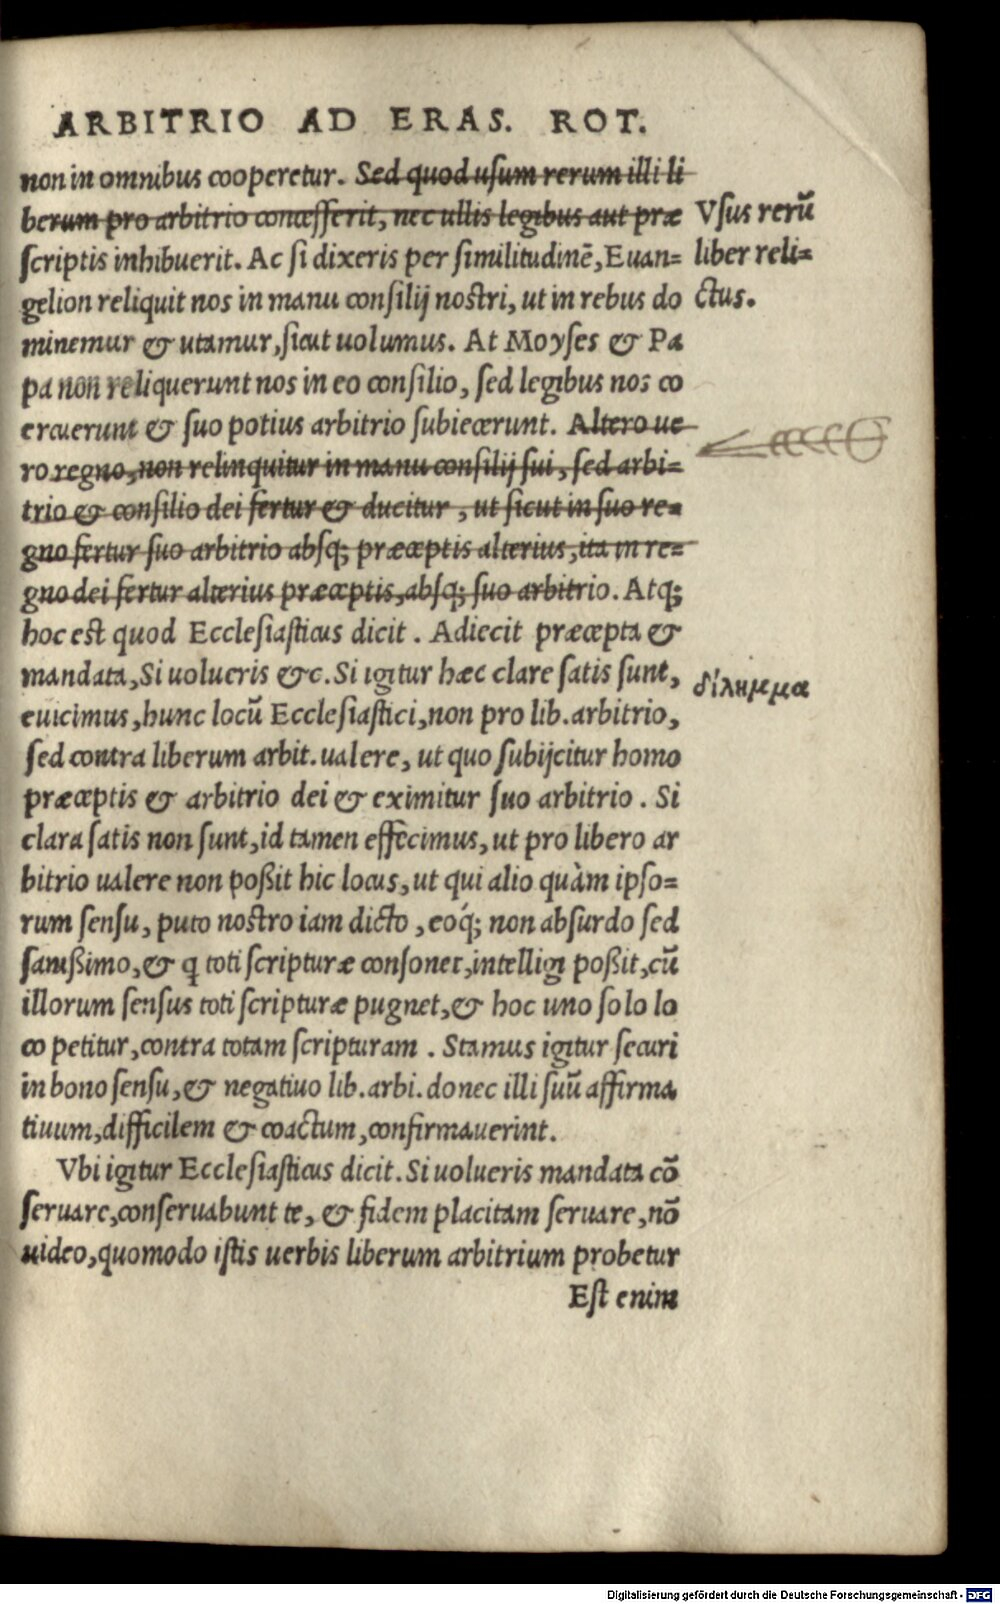 ARBITRIO AD ERAS. ROT.
non in omnibus cooperetur. Sed quod uſum rerum illi li
berum pro arbitrio conceſſerit, nec ullis legibus aut præ
ſcriptis inhibuerit. Ac ſi dixeris per ſimilitudinē, Euan=
gelion reliquit nos in manu conſilij noſtri, ut in rebus do
minemur & utamur, ſicut uolumus. At Moyſes & Pa
pa non reliquerunt nos in eo conſilio, ſed legibus nos co
ercuerunt & ſuo potius arbitrio ſubiecerunt. Altero ue
ro regno, non relinquitur in manu conſilij ſui, ſed arbi=
trio & conſilio dei fertur & ducitur, ut ſicut in ſuo re=
gno fertur ſuo arbitrio abſq; præceptis alterius, ita in re=
gno dei fertur alterius præceptis, abſq; ſuo arbitrio. Atq;
hoc est quod Eccleſiaſticus dicit. Adiecit præcepta &
mandata, Si uolueris &c. Si igitur hæc clare ſatis ſunt,
euicimus, hunc locū Eccleſiaſtici, non pro lib. arbitrio,
ſed contra liberum arbit. ualere, ut quo ſubijcitur homo
præceptis & arbitrio dei & eximitur ſuo arbitrio. Si
clara ſatis non ſunt, id tamen effecimus, ut pro libero ar
bitrio ualere non poßit hic locus, ut qui alio quàm ipſo=
rum ſenſu, puto noſtro iam dicto, eoq́; non abſurdo ſed
ſanißimo, & q toti ſcripturæ conſonet, intelligi poßit, cū
illorum ſenſus toti ſcripturæ pugnet, & hoc uno ſolo lo
co petitur, contra totam ſcripturam. Stamus igitur ſecuri
in bono ſenſu, & negatiuo lib. arbi. donec illi ſuū affirma
tiuum, difficilem & coactum, confirmauerint.
Vbi igitur Eccleſiaſticus dicit. Si uolueris mandata cō
ſeruare, conſeruabunt te, & fidem placitam ſeruare, nō
uideo, quomodo iſtis uerbis liberum arbitrium probetur
Eſt enim
Vſus rerū
liber reli=
ctus.
δίλημμα
Digitalisierung gefördert durch die Deutsche Forschungsgemeinschaft - DFG